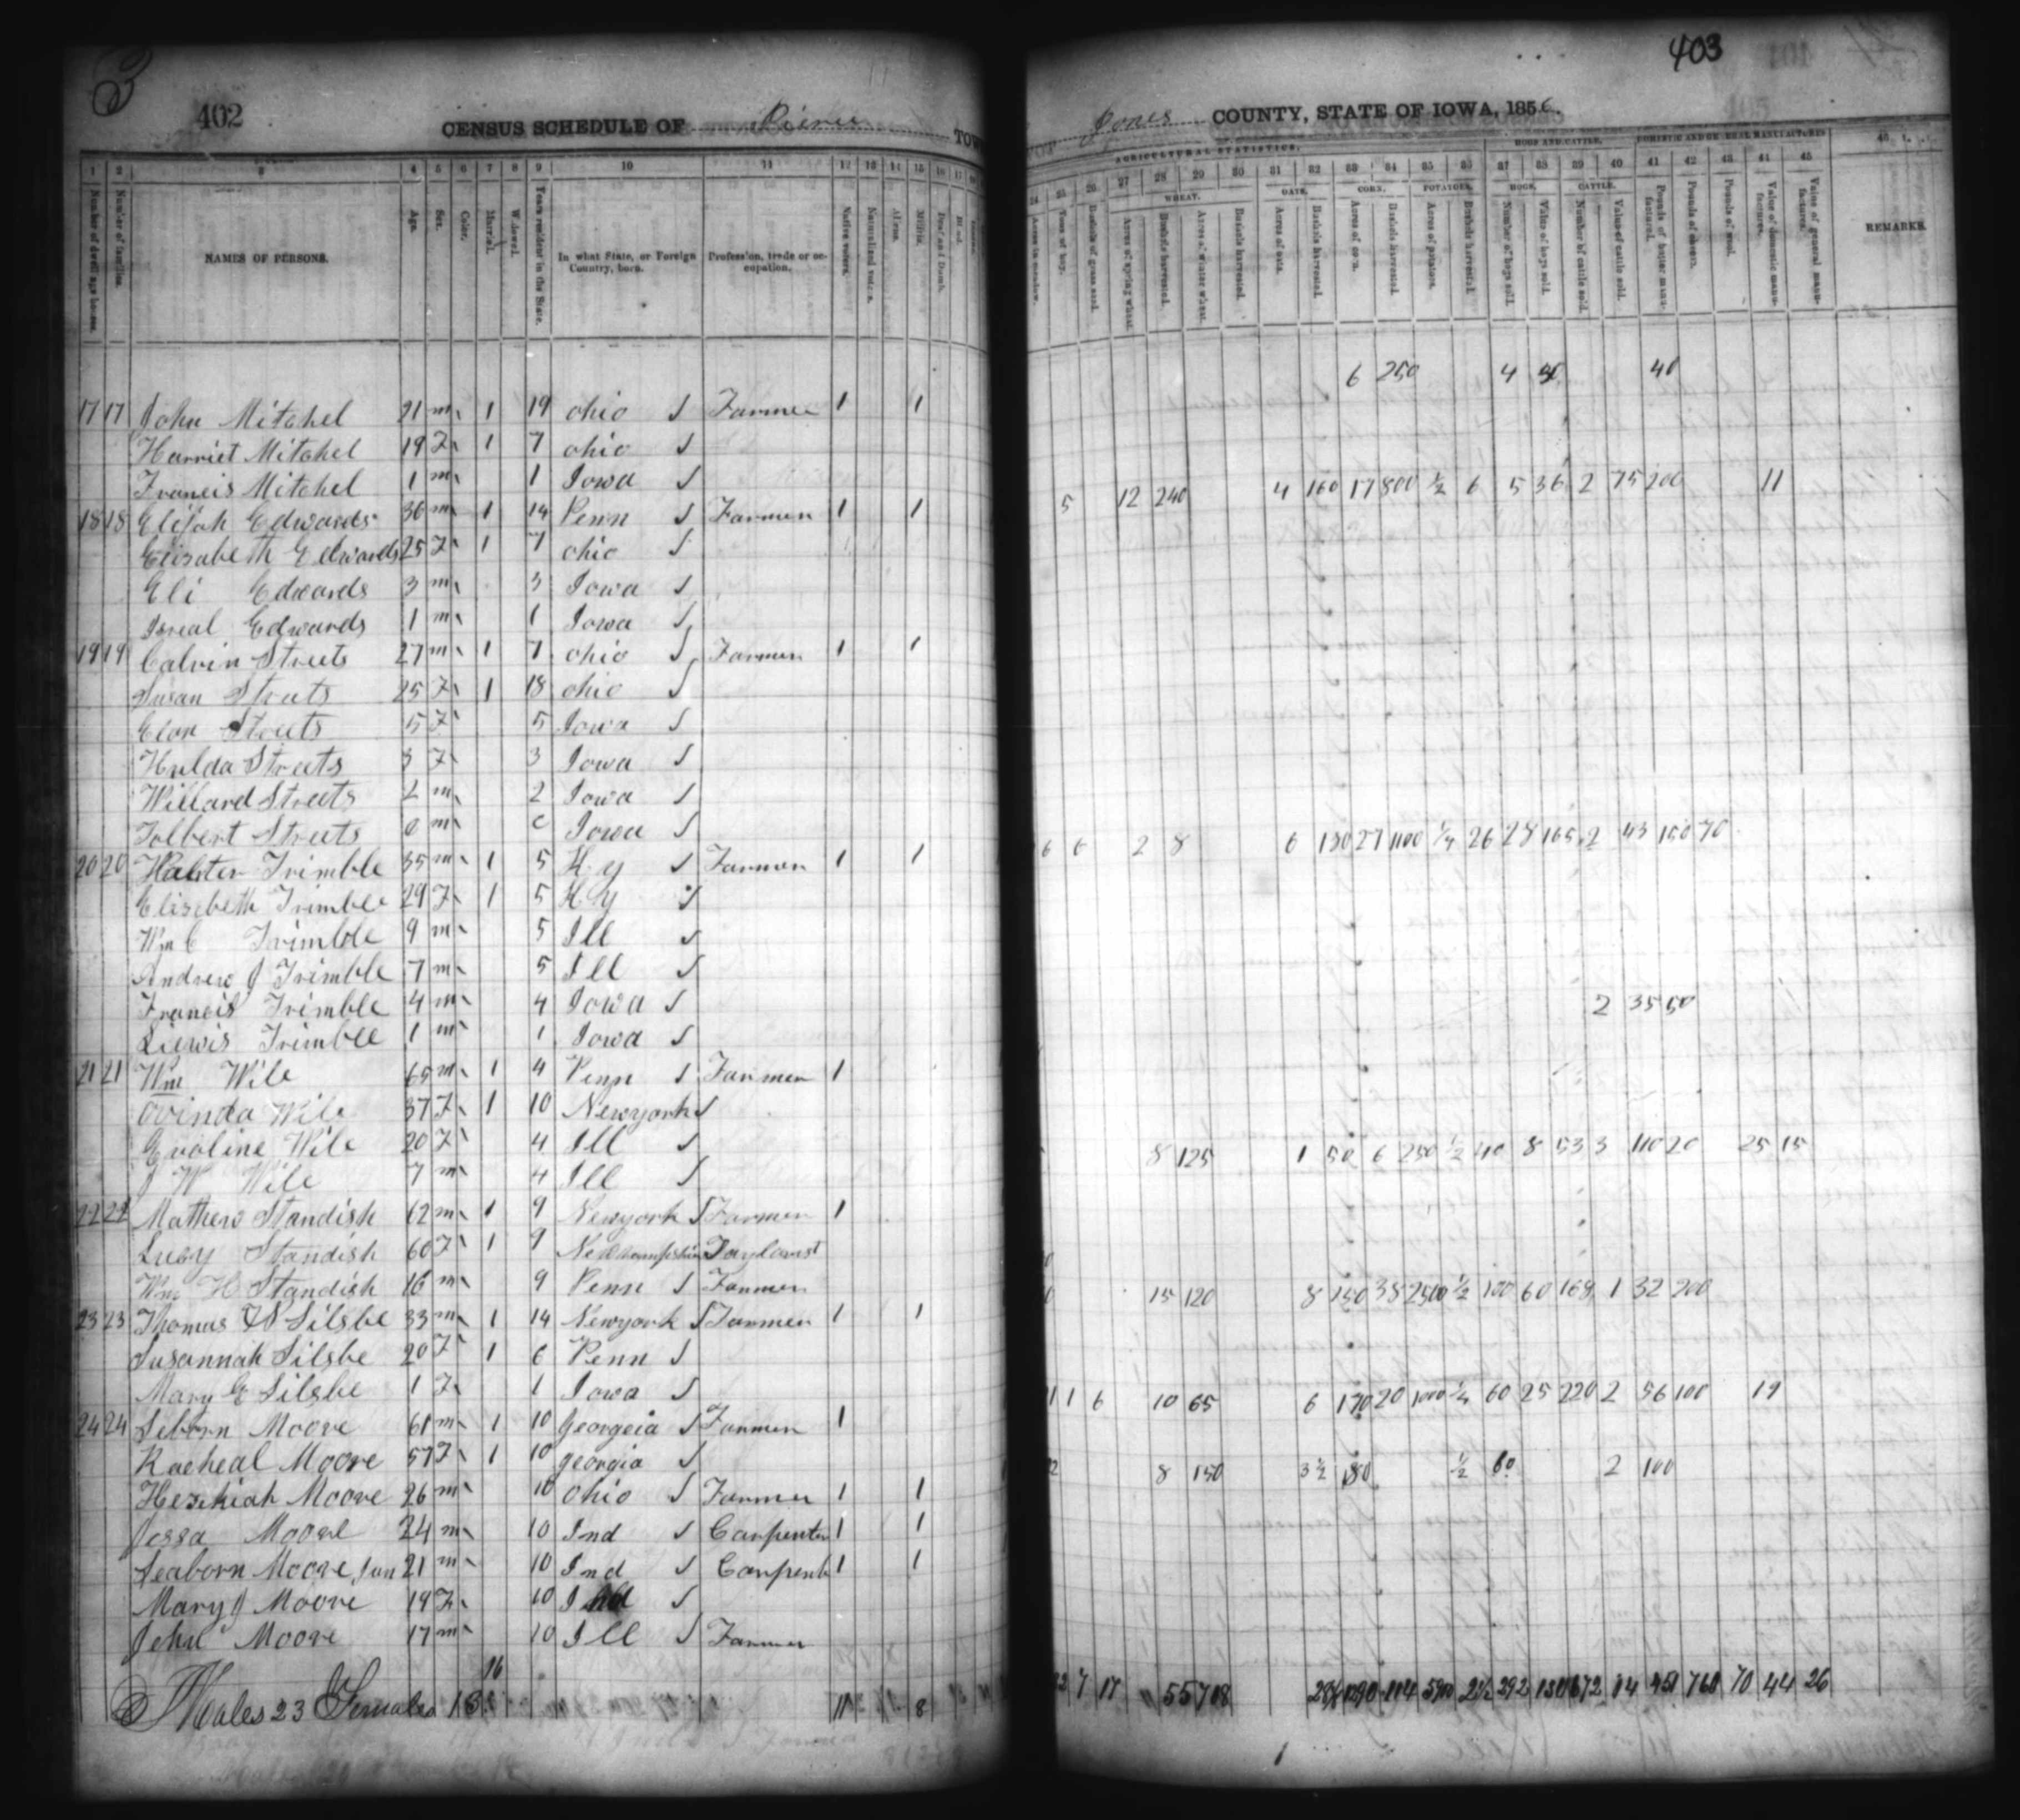 3
402
CENSUS SCHEDULE OF
TOW
1 2 3 4 5 6 7 8 9 10 11 12 13 14 15 16 17
Number of dwelling houses.
Number of families.
NAMES OF PERSONS.
Age.
Sex.
Color.
Married.
Widowed.
Years resident in the State.
In what State, or Foreign Country, born.
Profession, trade or occupation.
Native voters.
Naturalized voters.
Aliens.
Militia.
Deaf and Dumb.
Blind.
17 17 John Mitchel 21 m 1 19 ohio Farmer 1 1
Harriet Mitchel 19 F 1 7 ohio
Francis Mitchel 1 m 1 Iowa
18 18 Elijah Edwards 36 m 1 14 Penn Farmer 1 1
Elizabeth Edwards 25 F 1 7 ohio
Eli Edwards 3 m 3 Iowa
Isreal Edwards 1 m 1 Iowa
19 19 Calvin Streets 27 m 1 7 ohio Farmer 1 1
Susan Streets 25 F 1 18 ohio
Streets 5 F 5 Iowa
Hulda Streets 3 F 3 Iowa
Willard Streets 2 m 2 Iowa
Tolbert Streets 0 m Iowa
20 20 Trimble 35 m 1 5 Ky Farmer 1 1
Elizebeth Trimble 29 F 1 5 Ky
Wm C Trimble 9 m 5 Ill
Andrew J Trimble 7 m 5 Ill
Francis Trimble 4 m 4 Iowa
Liewis Trimble 1 m 1 Iowa
21 21 Wm Wile 65 m 1 4 Penn Farmer 1
Ovinda Wile 37 F 1 10 Newyork
Evaline Wile 20 F 4 Ill
J W Wile 7 m 4 Ill
22 22 Mathew Standish 62 m 1 9 Newyork Farmer 1
Lucy Standish 60 F 1 9
Wm H Standish 16 m 9 Penn Farmer
23 23 Thomas W Silsbe 33 m 1 14 Newyork Farmer 1 1
Susannah Silsbe 20 F 1 6 Penn
Mary E Silsbe 1 F 1 Iowa
24 24 Seborn Moore 61 m 1 10 Georgeia Farmer 1
Racheal Moore 57 F 1 10 georgia
Hezekiah Moore 26 m 10 ohio Farmer 1 1
Jessa Moore 24 m 10 Ind Carpenter 1 1
Seaborn Moore Jun 21 m 10 Ind 1 1
Mary J Moore 19 F 10
John Moore 17 m 10 Ill Farmer
16
Males 23 Females 13 11 8
403
Jones COUNTY, STATE OF IOWA, 1856.
AGRICULTURAL STATISTICS.
HOGS AND CATTLE.
DOMESTIC AND GENERAL MANUFACTURES
25 26 27 28 29 30 31 32 33 34 35 36 37 38 39 40 41 42 43 44 45 46
WHEAT. OATS. CORN. POTATOES. HOGS. CATTLE.
Acres in meadow.
Tons of hay.
Bushels of grass seed.
Acres of spring wheat.
Bushels harvested.
Acres of winter wheat.
Bushels harvested.
Acres of oats.
Bushels harvested.
Acres of corn.
Bushels harvested.
Acres of potatoes.
Bushels harvested.
Number of hogs sold.
Value of hogs sold.
Number of cattle sold.
Value of cattle sold.
Pounds of butter manufactured.
Pounds of cheese.
Pounds of wool.
Value of domestic manufactures.
Value of general manufactures.
REMARKS.
6 250 4 40
5 12 240 4 160 17 800 ½ 6 5 36 2 75 200 11
6 6 2 8 6 130 27 1100 ¼ 26 28 165 2 43 150 70
2 35 50
8 125 1 50 6 250 ½ 40 8 53 3 110 20 25 15
15 120 8 250 38 2500 ½ 100 60 168 1 32 200
1 1 6 10 65 6 170 20 1000 ¼ 60 25 220 2 56 100 19
8 150 3½ 180 ½ 60 2 100
7 17 55 708 114 2½ 292 130 672 14 351 760 70 44 26